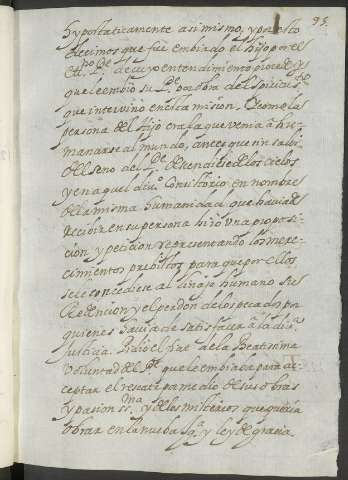 95.
hypostaticamente asi mismo, y por esto
decimos que fue embiado el hijo por el
Etº. Pe. de cuyo entendimiento procede, y
que le embio su Pe. por obra del Spiritu Sto.
que intervino en esta mision. Y como la
persona del Hijo era la que venia à hu-
manarse al mundo, antes que sin salir
del seno del Pe. descendiese de los cielos
y en aquel divº. Consistorio, en nombre
de la misma humanidad, que havia de
recibir en su persona hizo una proposi-
cion, y peticion representando los mere-
cimientos previstos, para que por ellos
se le concediese al linaje humano su
Redencion, y el perdon de los pecados, por
quienes havia de satisfacer à la diva.
justicia. Pidio el fiat de la Beatisima
voluntad del Pe. que le embiaba para ac-
ceptar el rescate por medio de sus obras
y pasion ssma. y de los misterios que queria
obrar en la nueba Yga. y ley de gracia.